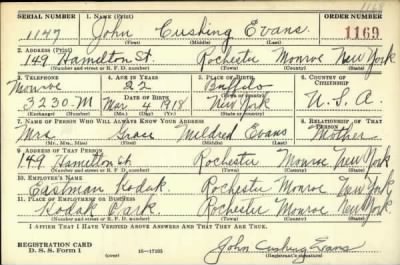 1168
SERIAL NUMBER 1. NAME (Print) ORDER NUMBER
1147 John Cushing Evans 1169
(First) (Middle) (Last)
2. ADDRESS (Print)
149 Hamilton St. Rochester Monroe New York
(Number and street or R. F. D. number) (Town) (County) (State)
3. TELEPHONE 4. AGE IN YEARS 5. PLACE OF BIRTH 6. COUNTRY OF CITIZENSHIP
Monroe 22 Buffalo
DATE OF BIRTH (Town or county)
3230-M Mar 4 1918 New York U.S.A.
(Exchange) (Number) (Mo.) (Day) (Yr.) (State or country)
7. NAME OF PERSON WHO WILL ALWAYS KNOW YOUR ADDRESS 8. RELATIONSHIP OF THAT PERSON
Mrs. Grace Mildred Evans Mother
(Mr., Mrs., Miss) (First) (Middle) (Last)
9. ADDRESS OF THAT PERSON
149 Hamilton St Rochester Monroe New York
(Number and street or R. F. D. number) (Town) (County) (State)
10. EMPLOYER'S NAME
Eastman Kodak Rochester Monroe New York
11. PLACE OF EMPLOYMENT OR BUSINESS
Kodak Park Rochester Monroe New York
(Number and street or R. F. D. number) (Town) (County) (State)
I AFFIRM THAT I HAVE VERIFIED ABOVE ANSWERS AND THAT THEY ARE TRUE.
REGISTRATION CARD
D. S. S. Form 1 (over) 16—17105 John Cushing Evans
(Registrant's signature)